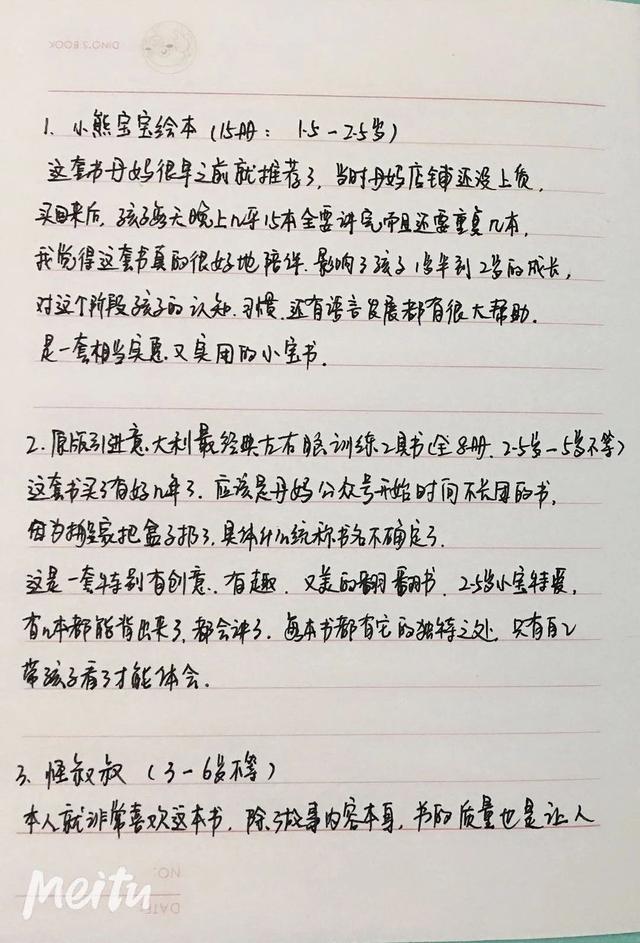 DINO'S BOOK
1. 小熊宝宝绘本(15册: 1.5-2.5岁)
这套书丹妈很早之前就推荐了,当时丹妈店铺还没上货,
买回来后,孩子每天晚上几乎15本全要讲完而且还要重复几本,
我觉得这套书真的很好地陪伴.影响了孩子1岁半到2岁的成长,
对这个阶段孩子的认知.习惯.还有语言发展都有很大帮助.
是一套相当实惠又实用的小宝书.
2.原版引进意大利最经典左右脑训练工具书(全8册.2.5岁-5岁不等)
这套书买了有好几年了.应该是丹妈公众号开始时间不长团的书,
因为搬家把盒子扔了,具体什么统称书名不确定了.
这是一套特别有创意.有趣.又美的翻翻书.2.5岁小宝特爱,
有几本都能背出来了,都会讲了.每本书都有它的独特之处.只有自己
带孩子看了才能体会.
3、怪叔叔(3-6岁不等)
本人就非常喜欢这本书,除了故事内容本身,书的质量也是让人
NO:
DATE
Meitu